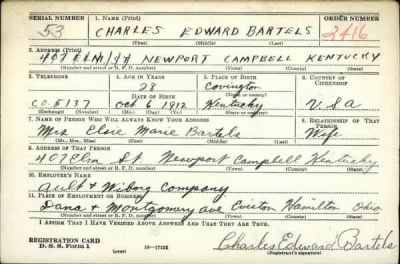 SERIAL NUMBER 1. NAME (Print) ORDER NUMBER
53 CHARLES EDWARD BARTELS 2416
(First) (Middle) (Last)
2. ADDRESS (Print)
407 ELM ST NEWPORT CAMPBELL KENTUCKY
(Number and street or R. F. D. number) (Town) (County) (State)
3. TELEPHONE 4. AGE IN YEARS 5. PLACE OF BIRTH 6. COUNTRY OF CITIZENSHIP
28 Covington
DATE OF BIRTH (Town or county)
CO. 5137 Oct 6 1912 Kentucky U.S.A
(Exchange) (Number) (Mo.) (Day) (Yr.) (State or country)
7. NAME OF PERSON WHO WILL ALWAYS KNOW YOUR ADDRESS 8. RELATIONSHIP OF THAT PERSON
Mrs Elsie Marie Bartels Wife
(Mr., Mrs., Miss) (First) (Middle) (Last)
9. ADDRESS OF THAT PERSON
407 Elm St. Newport Campbell Kentucky
(Number and street or R. F. D. number) (Town) (County) (State)
10. EMPLOYER'S NAME
Ault & Wiborg Company
11. PLACE OF EMPLOYMENT OR BUSINESS
Dana & Montgomery ave Hamilton Ohio
(Number and street or R. F. D. number) (Town) (County) (State)
I AFFIRM THAT I HAVE VERIFIED ABOVE ANSWERS AND THAT THEY ARE TRUE.
REGISTRATION CARD
D. S. S. Form 1 (over) 16—17105 Charles Edward Bartels
(Registrant's signature)